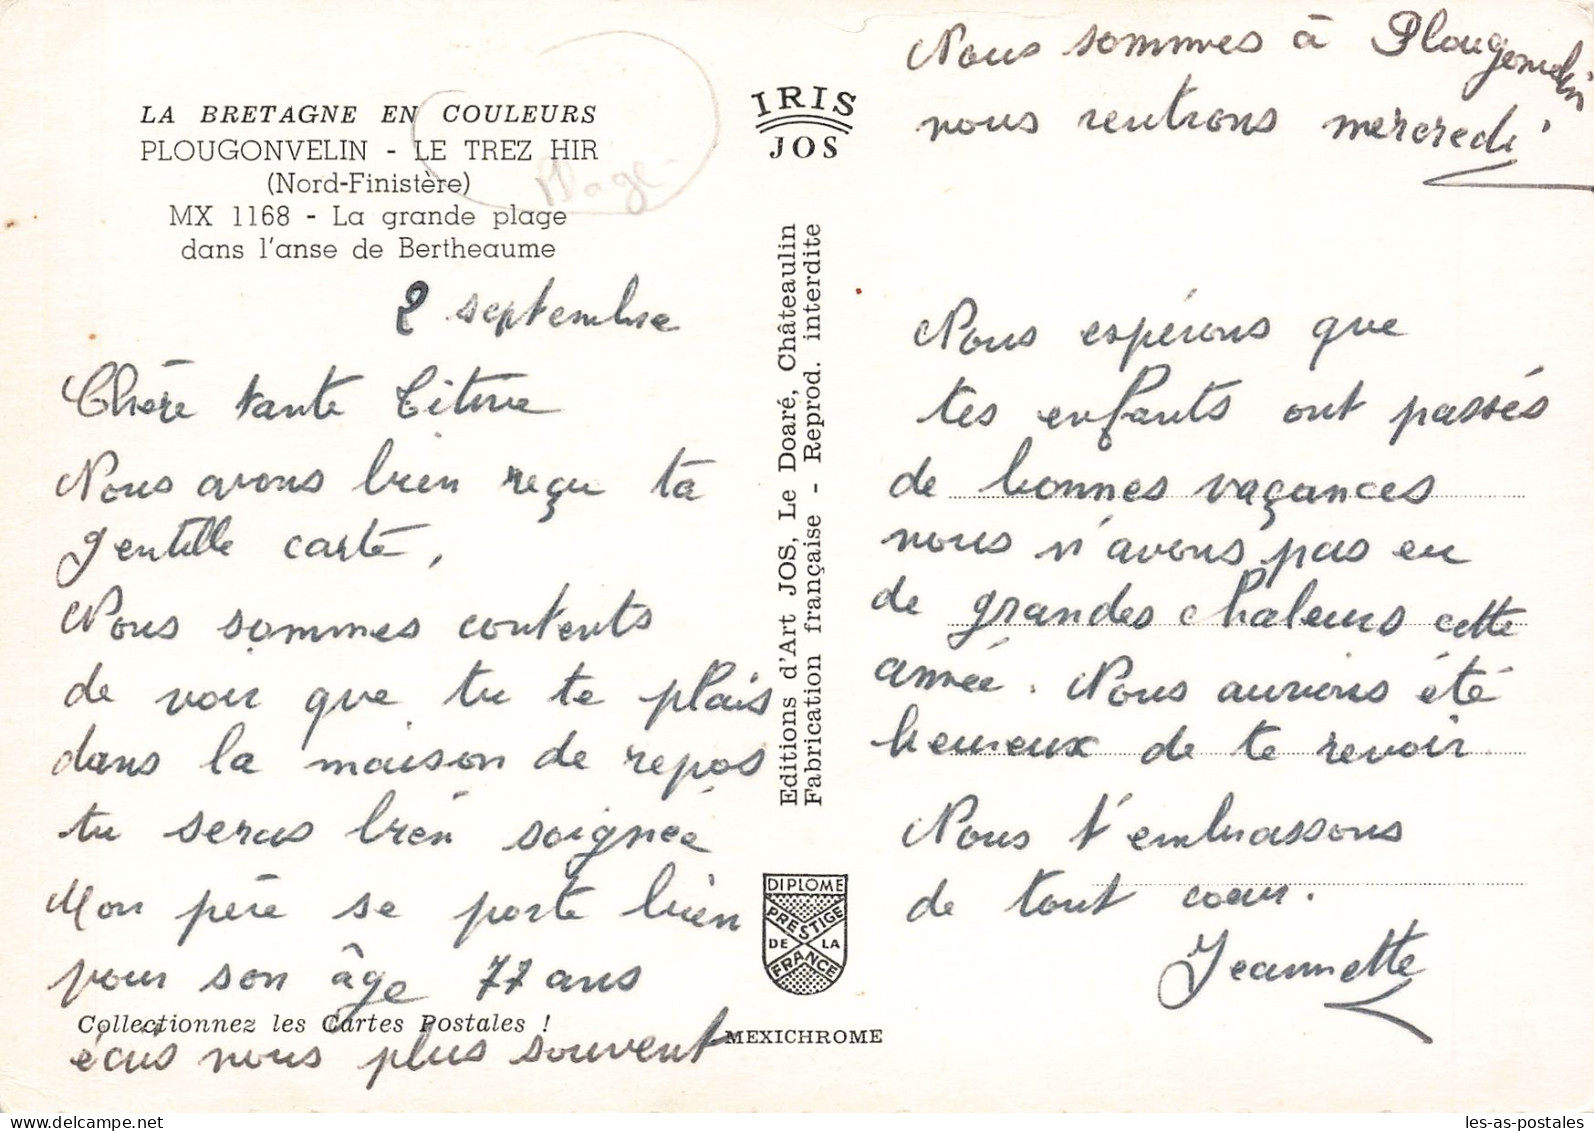 LA BRETAGNE EN COULEURS
PLOUGONVELIN - LE TREZ HIR
(Nord-Finistère)
MX 1168 - La grande plage
dans l'anse de Bertheaume
Plage
2 septembre
Chère tante
Nous avons bien reçu ta
gentille carte,
Nous sommes contents
de voir que tu te plais
dans la maison de repos
tu seras bien soignée
Mon père se porte bien
pour son âge 77 ans
Collectionnez les Cartes Postales !
écris nous plus souvent
IRIS
JOS
Editions d'Art JOS, Le Doaré, Châteaulin
Fabrication française - Reprod. interdite
DIPLOME
PRESTIGE
DE LA
FRANCE
MEXICHROME
Nous sommes à Plougonvelin
nous rentrons mercredi
Nous espérons que
tes enfants ont passés
de bonnes vaçances
nous n'avons pas eu
de grandes chaleurs cette
année. Nous aurions été
heureux de te revoir
Nous t'embrassons
de tout coeur.
Jeannette
les-as-postales.com